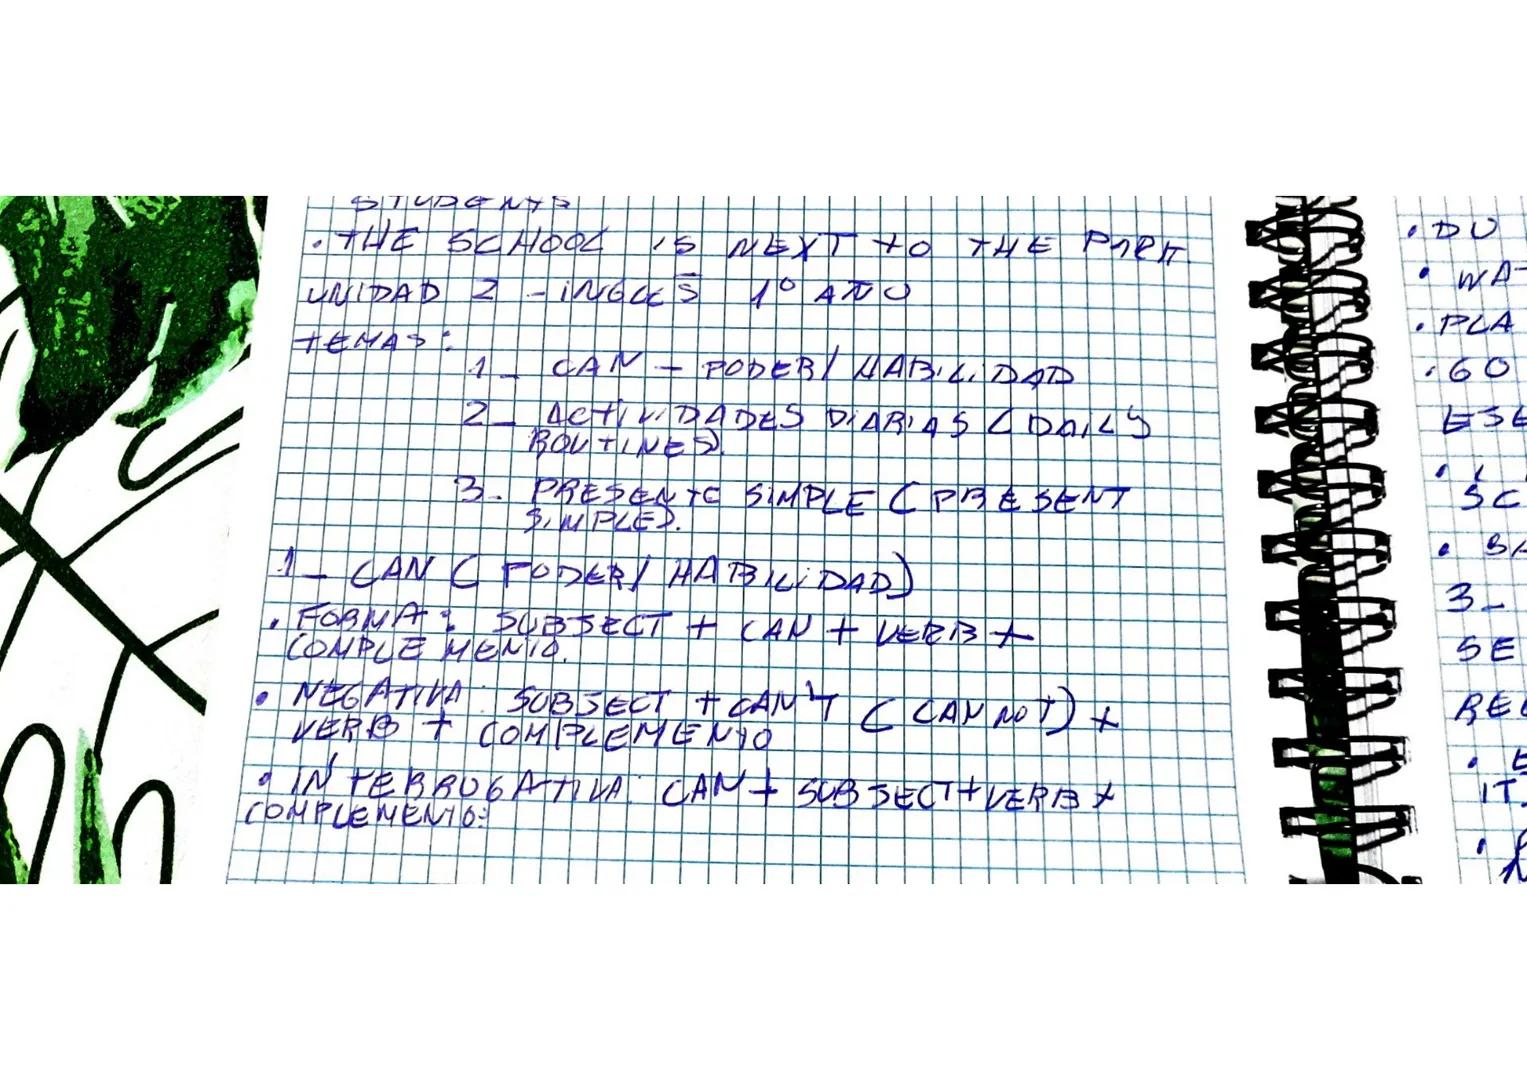 STUDENTS
. THE SCHOOL IS NEXT TO THE PARK
UNIDAD 2 - INGLÉS 1º AÑO
TEMAS:
1_ CAN - PODER / HABILIDAD
2_ ACTIVIDADES DIARIAS (DAILY
ROUTINES).
3- PRESENTE SIMPLE (PRESENT
SIMPLE).
1_ CAN (PODER / HABILIDAD)
. FORMA: SUBJECT + CAN + VERB +
COMPLEMENTO.
• NEGATIVA: SUBJECT + CAN'T (CAN NOT) +
VERB + COMPLEMENTO
• INTERROGATIVA: CAN + SUBJECT + VERB +
COMPLEMENTO:
. DO
• WA
. PLA
. GO
ESE
SC
• BA
3_
SE
REG
. E
IT.